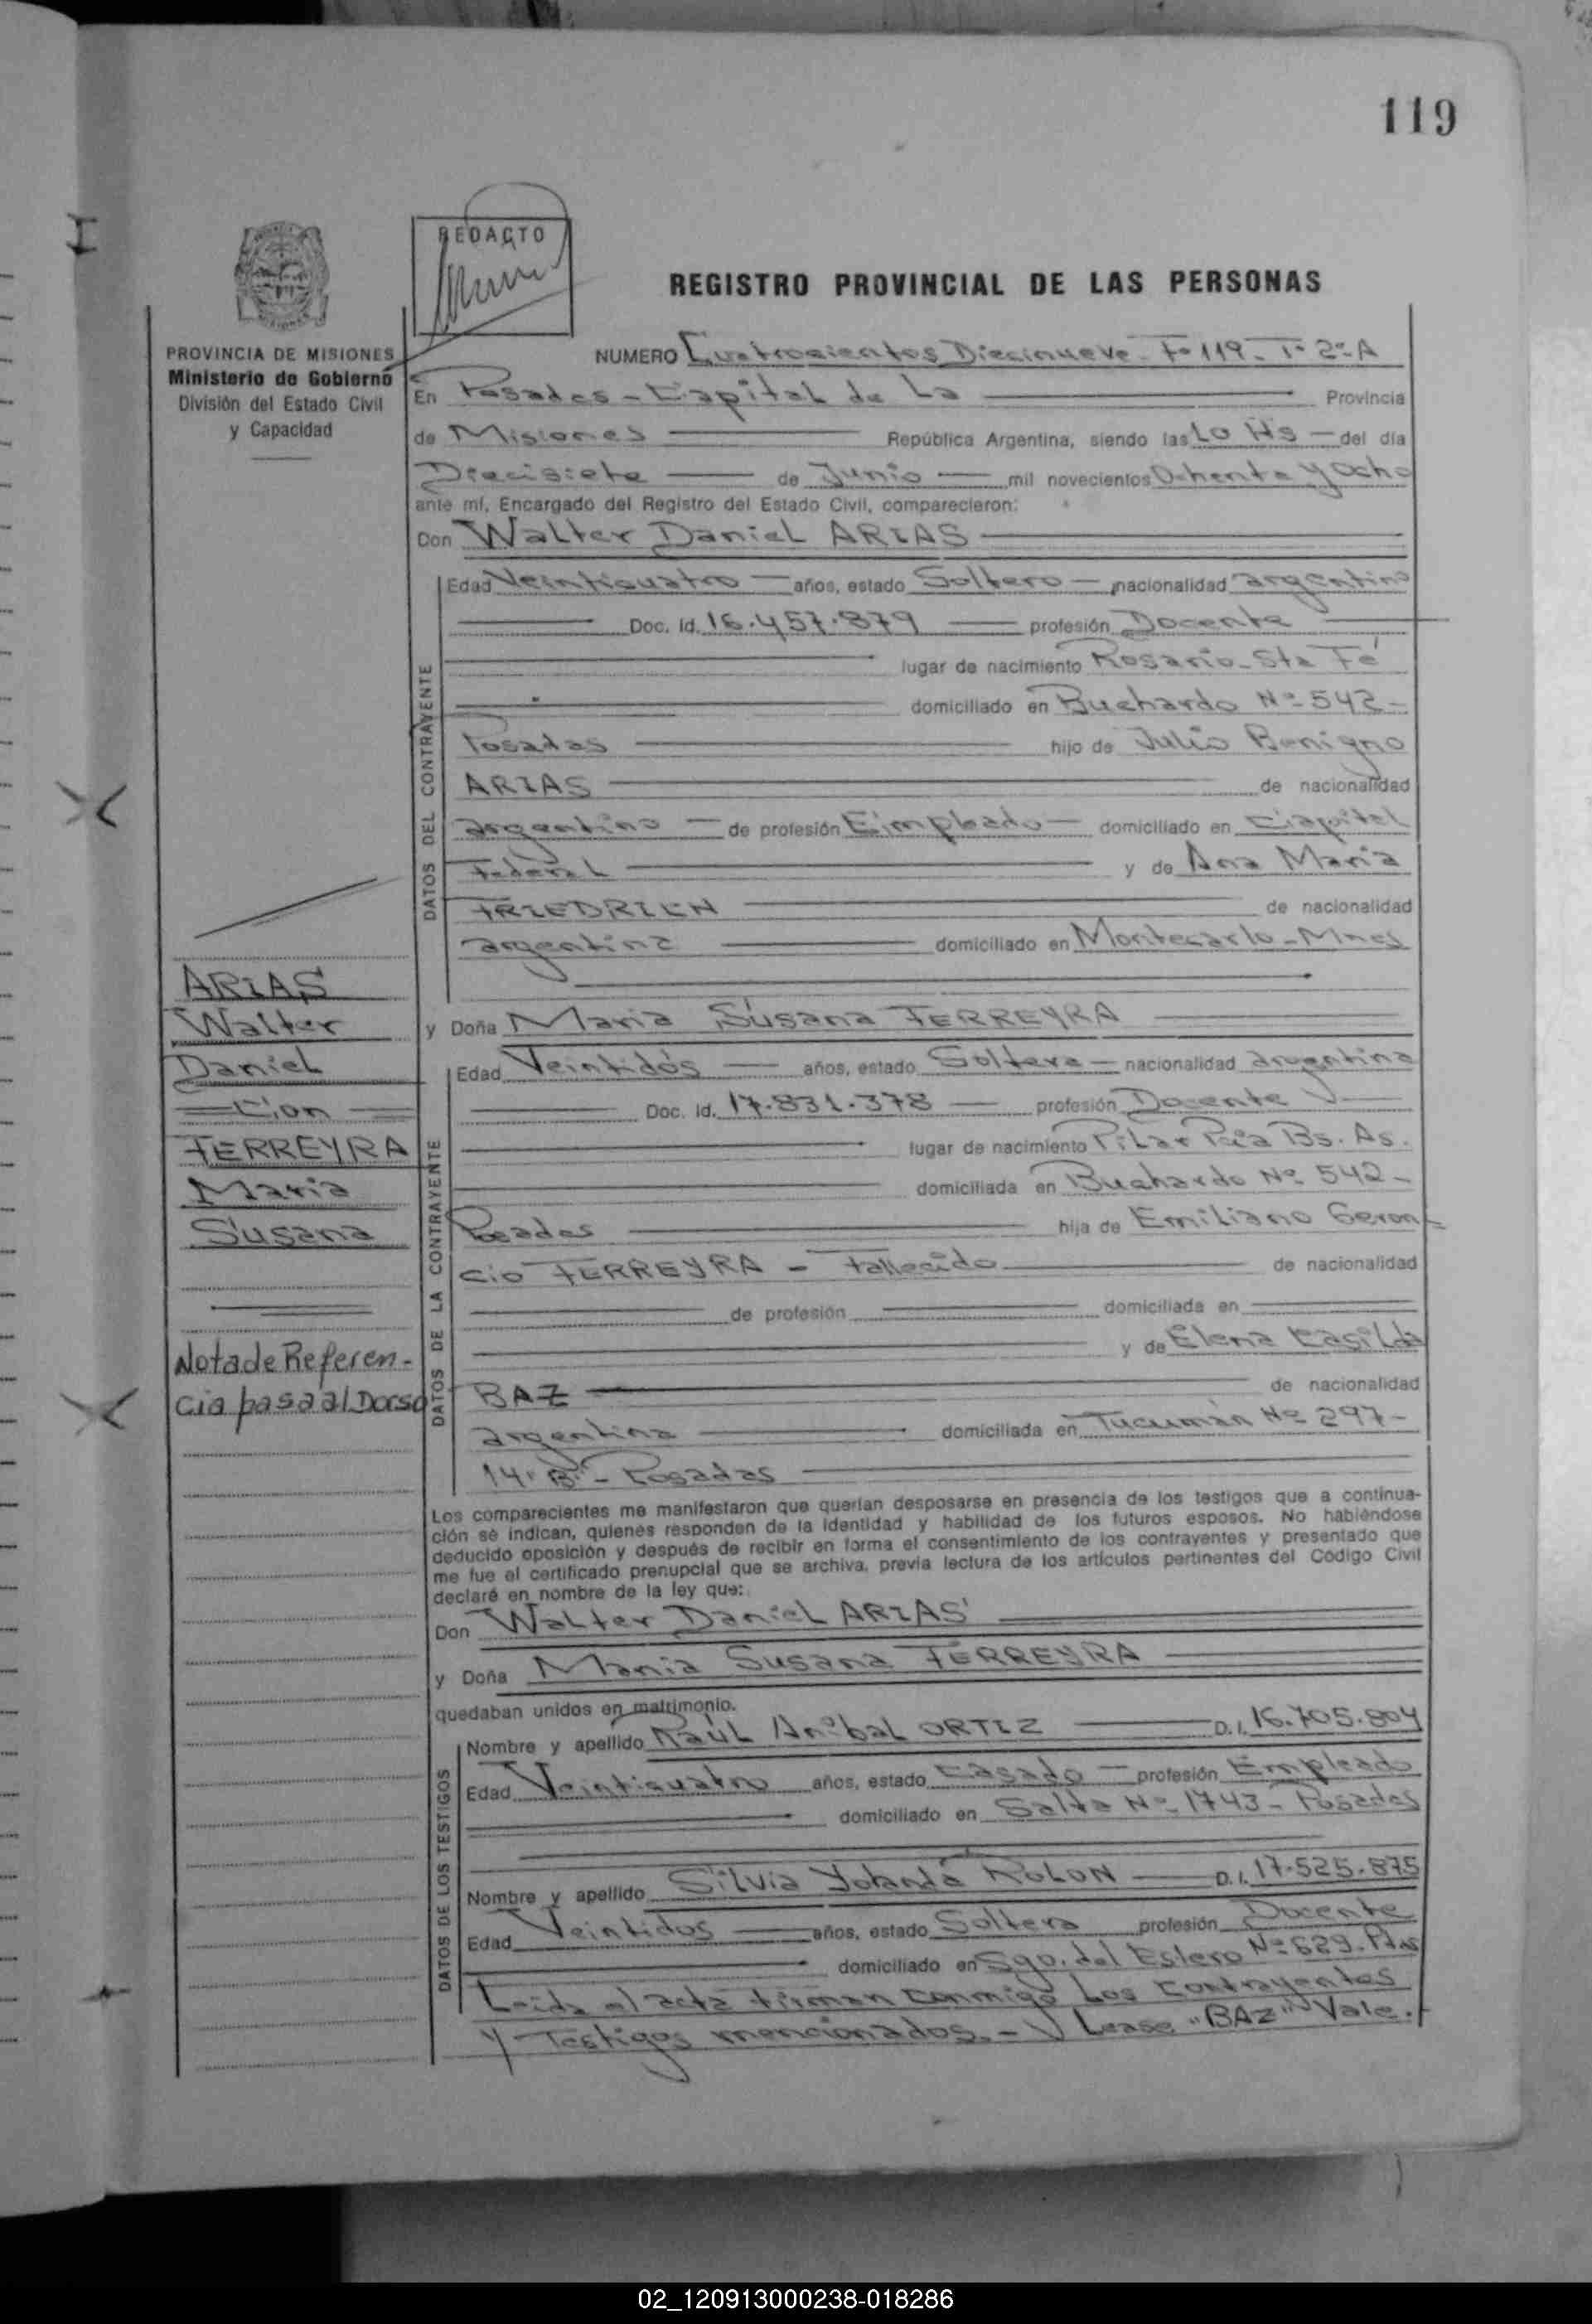 119
REDACTO
REGISTRO PROVINCIAL DE LAS PERSONAS
PROVINCIA DE MISIONES
Ministerio de Gobierno
División del Estado Civil
y Capacidad
NUMERO Cuatrocientos Diecinueve - Fº 119 - Tº 2º - A
En Posadas - Capital de La Provincia
de Misiones República Argentina, siendo las 10 Hs - del día
Diecisiete de Junio mil novecientos Ochenta y Ocho
ante mí, Encargado del Registro del Estado Civil, comparecieron:
Don Walter Daniel ARIAS
DATOS DEL CONTRAYENTE
Edad Veinticuatro años, estado Soltero - nacionalidad argentino
Doc. Id. 16.457.879 profesión Docente
lugar de nacimiento Rosario - Sta Fé
domiciliado en Buchardo Nº 542 -
Posadas hijo de Julio Benigno
ARIAS de nacionalidad
argentino - de profesión Empleado - domiciliado en Capital
Federal y de Ana Maria
FRIEDRICH de nacionalidad
argentina domiciliado en Montecarlo - Mnes
ARIAS
Walter
Daniel
= Con =
FERREYRA
Maria
Susana
Nota de Referen-
cia pasa al Dorso
y Doña Maria Susana FERREYRA
DATOS DE LA CONTRAYENTE
Edad Veintidós años, estado Soltera - nacionalidad argentina
Doc. Id. 17.831.378 - profesión Docente
lugar de nacimiento Pilar Pcia Bs. As.
domiciliada en Buchardo Nº 542 -
Posadas hija de Emiliano Geron-
cio FERREYRA - Fallecido de nacionalidad
de profesión domiciliada en
y de Elena Casilda
BAZ de nacionalidad
argentina domiciliada en Tucumán Nº 297 -
14º B - Posadas
Los comparecientes me manifestaron que querían desposarse en presencia de los testigos que a continua-
ción se indican, quienes responden de la identidad y habilidad de los futuros esposos. No habiéndose
deducido oposición y después de recibir en forma el consentimiento de los contrayentes y presentado que
me fue el certificado prenupcial que se archiva, previa lectura de los artículos pertinentes del Código Civil
declaré en nombre de la ley que:
Don Walter Daniel ARIAS
y Doña Maria Susana FERREYRA
quedaban unidos en matrimonio.
DATOS DE LOS TESTIGOS
Nombre y apellido Raúl Anibal ORTIZ D. I. 16.705.804
Edad Veinticuatro años, estado Casado - profesión Empleado
domiciliado en Salta Nº 1743 - Posadas
Nombre y apellido Silvia Yolanda ROLON D. I. 17.525.875
Edad Veintidos años, estado Soltera profesión Docente
domiciliado en Sgo. del Estero Nº 629. Pdas
Leida el acta firman conmigo Los contrayentes
y Testigos mencionados. - Lease "BAZ" Vale.
02_120913000238-018286